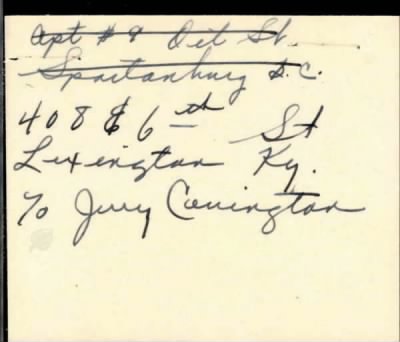 Apt # 9 Oet St.
Spartanburg S.C.
408 E 6th St
Lexington Ky.
c/o Jerry Covington